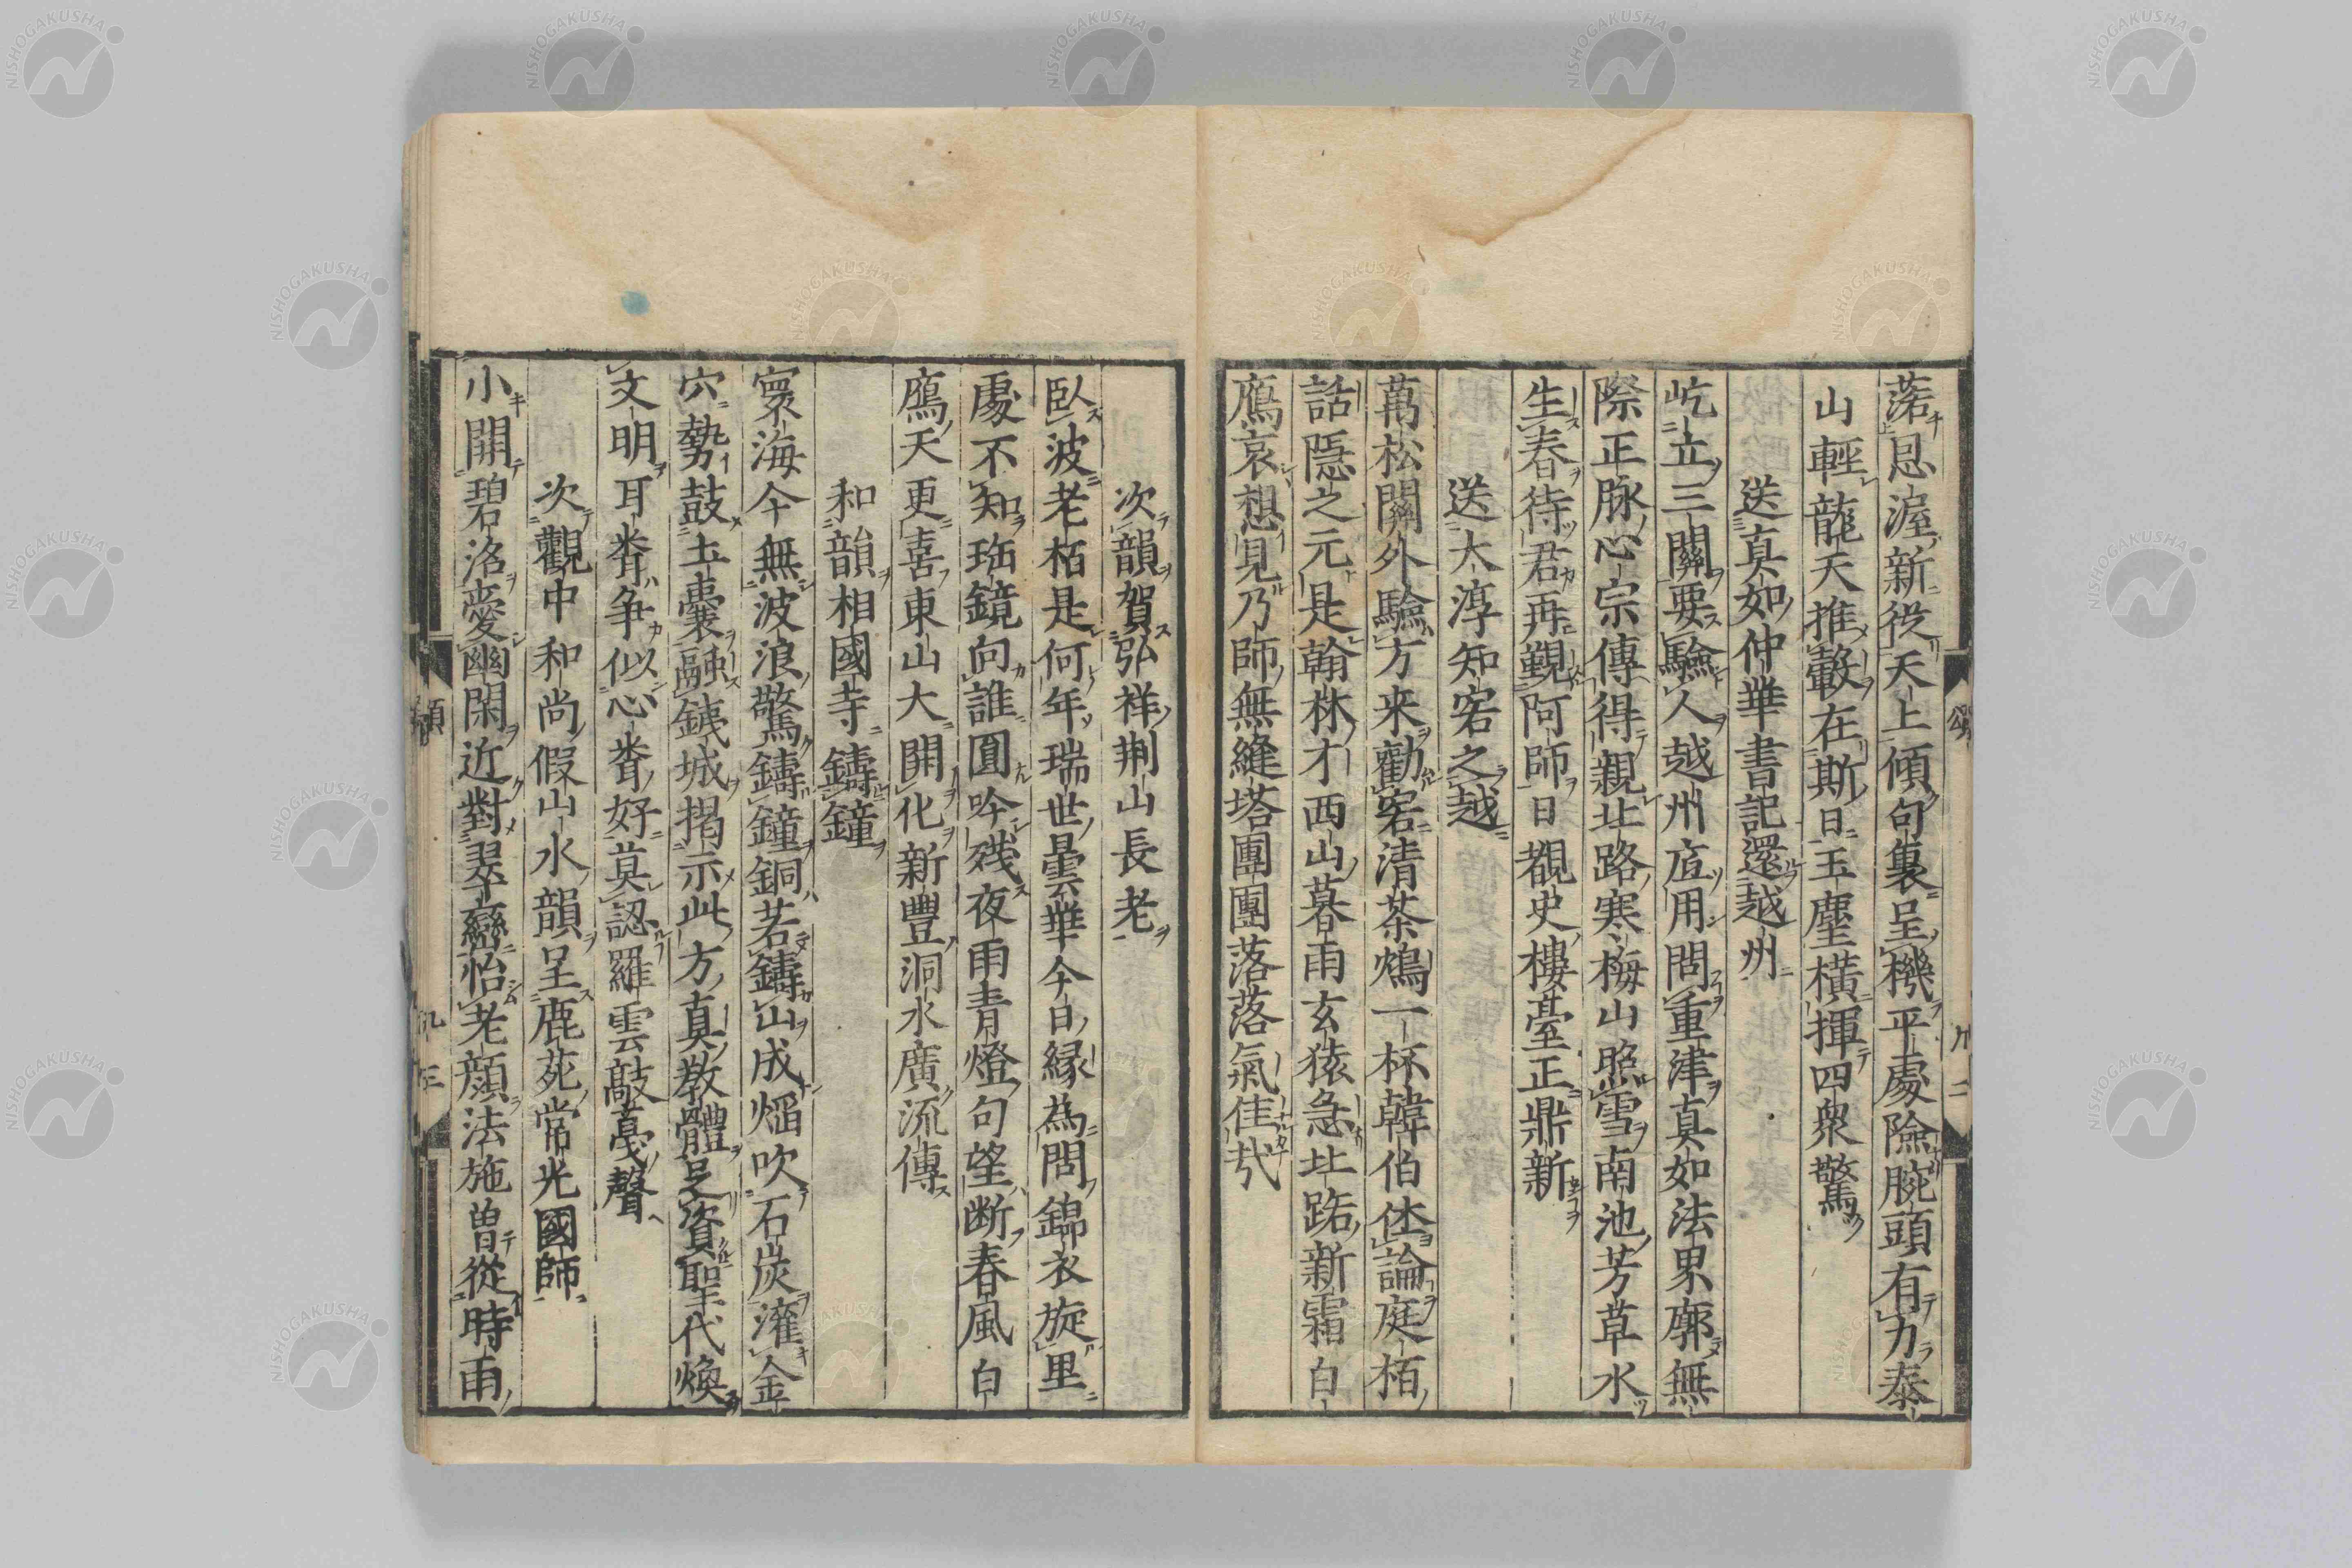 渃恩渥新從天上傾句裏呈機平處險腕頭有力泰
山輕龍天推轂在斯日玉塵橫揮四衆驚
送真如仲華書記還越州
屹立三關要驗人越州直用問重津真如法界廓無
際正脉心宗傳得親北路寒梅山照雪南池芳草水
生春待君再覲阿師日覩史樓臺正鼎新
送大淳知客之越
萬松關外驗方来勸客清茶鴆一杯韓伯休論庭栢
話隱之元是翰林才西山暮雨玄猿急北路新霜白
鴈哀想見乃師無縫塔團團落落氣佳哉
次韻賀弘祥荆山長老
臥波老栢是何年瑞世曇華今日縁為問錦衣旋里
處不知珤鏡向誰圓吟殘夜雨青燈句望断春風白
鴈天更喜東山大開化新豐洞水廣流傳
和韻相國寺鑄鐘
寰海今無波浪驚鑄鐘銅若鑄山成熖吹石炭灘金
穴勢鼓土囊融鐵城掲示此方真教體足資聖代煥
文明耳聋争似心聋好莫認羅雲敲戞聲
次觀中和尚假山水韻呈鹿苑常光國師
小開碧洛愛幽閑近對翠巒怡老顔法施曽從時雨
頌
NISHOGAKUSHA